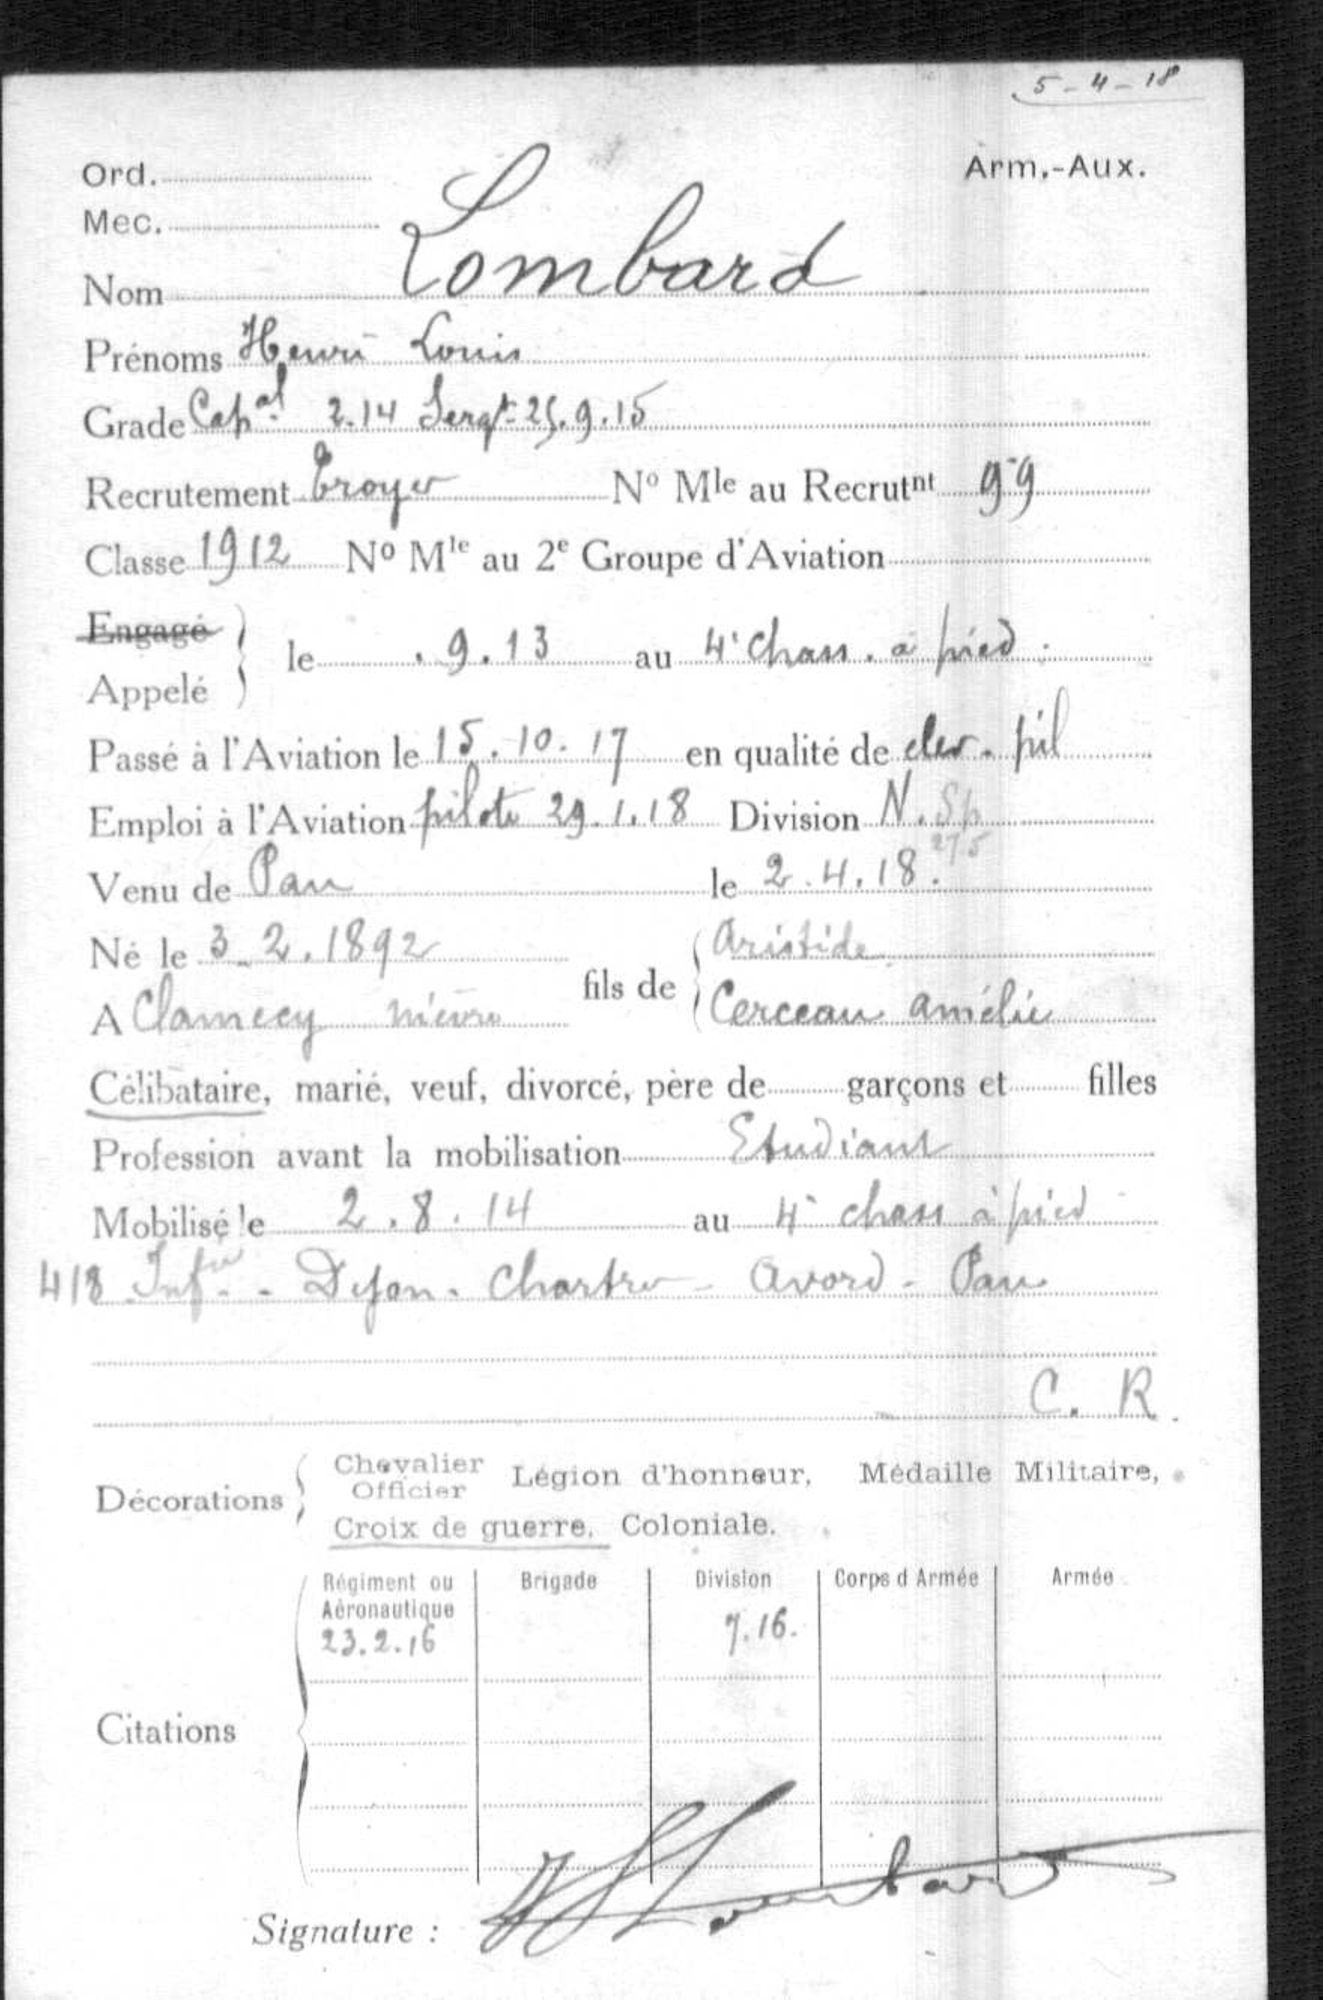 5-4-18
Ord. Arm.-Aux.
Mec.
Nom Lombard
Prénoms Henri Louis
Grade Capal 2.14 Sergt 25.9.15
Recrutement Troyes No Mle au Recrutnt 99
Classe 1912 No Mle au 2e Groupe d'Aviation
Engagé
le .9.13 au 4e Chass. à pied.
Appelé
Passé à l'Aviation le 15.10.17 en qualité de elev. pil
Emploi à l'Aviation pilote 29.1.18 Division N. Sp
275
Venu de Pau le 2.4.18.
Né le 3.2.1892 Aristide
fils de
A Clamecy Nièvre Cerceau Amélie
Célibataire, marié, veuf, divorcé, père de garçons et filles
Profession avant la mobilisation Etudiant
Mobilisé le 2.8.14 au 4e chass à pied
418 Infie - Dijon - Chartres - Avord - Pau
C. R.
Chevalier
Officier Légion d'honneur, Médaille Militaire,
Décorations
Croix de guerre, Coloniale.
Régiment ou Aéronautique Brigade Division Corps d Armée Armée
23.2.16 7.16.
Citations
Signature : H Lombard